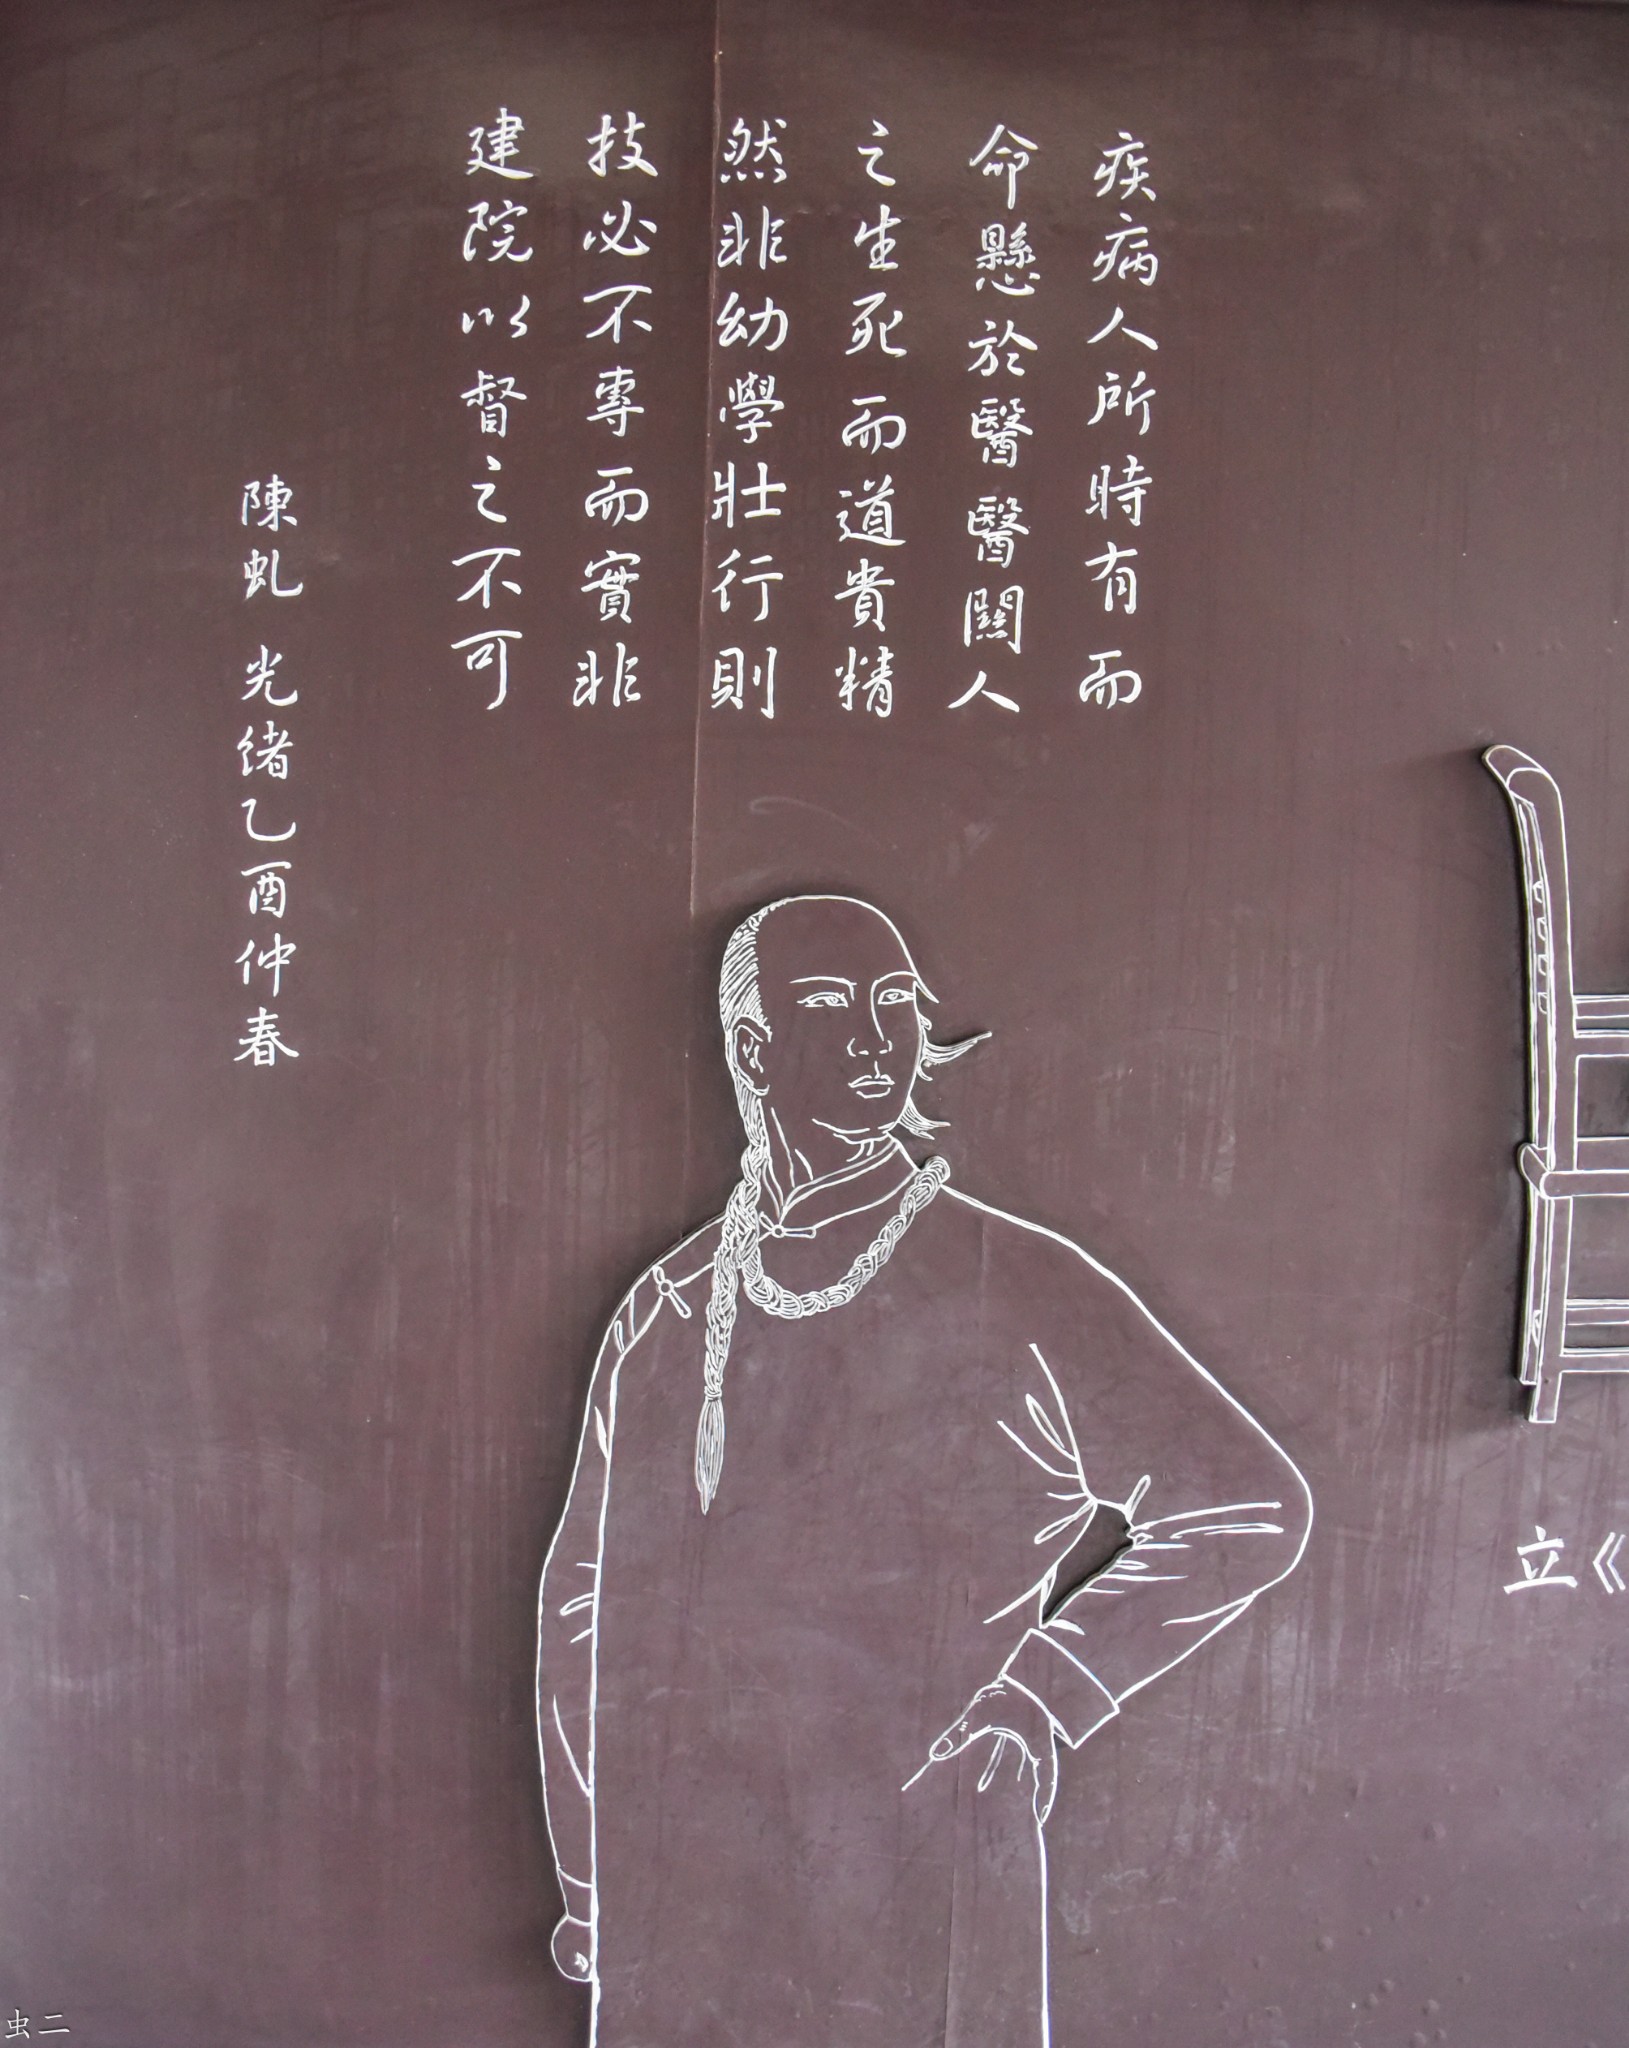 疾病人所時有而
命懸於醫醫關人
之生死而道貴精
然非幼學壯行則
技必不專而實非
建院以督之不可
陳虬 光緒乙酉仲春
立《
虫二